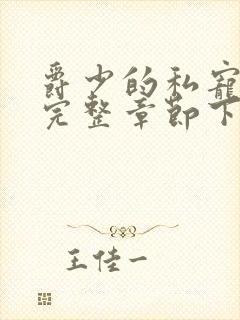 爵少的私宠
完整章节下
王佳一